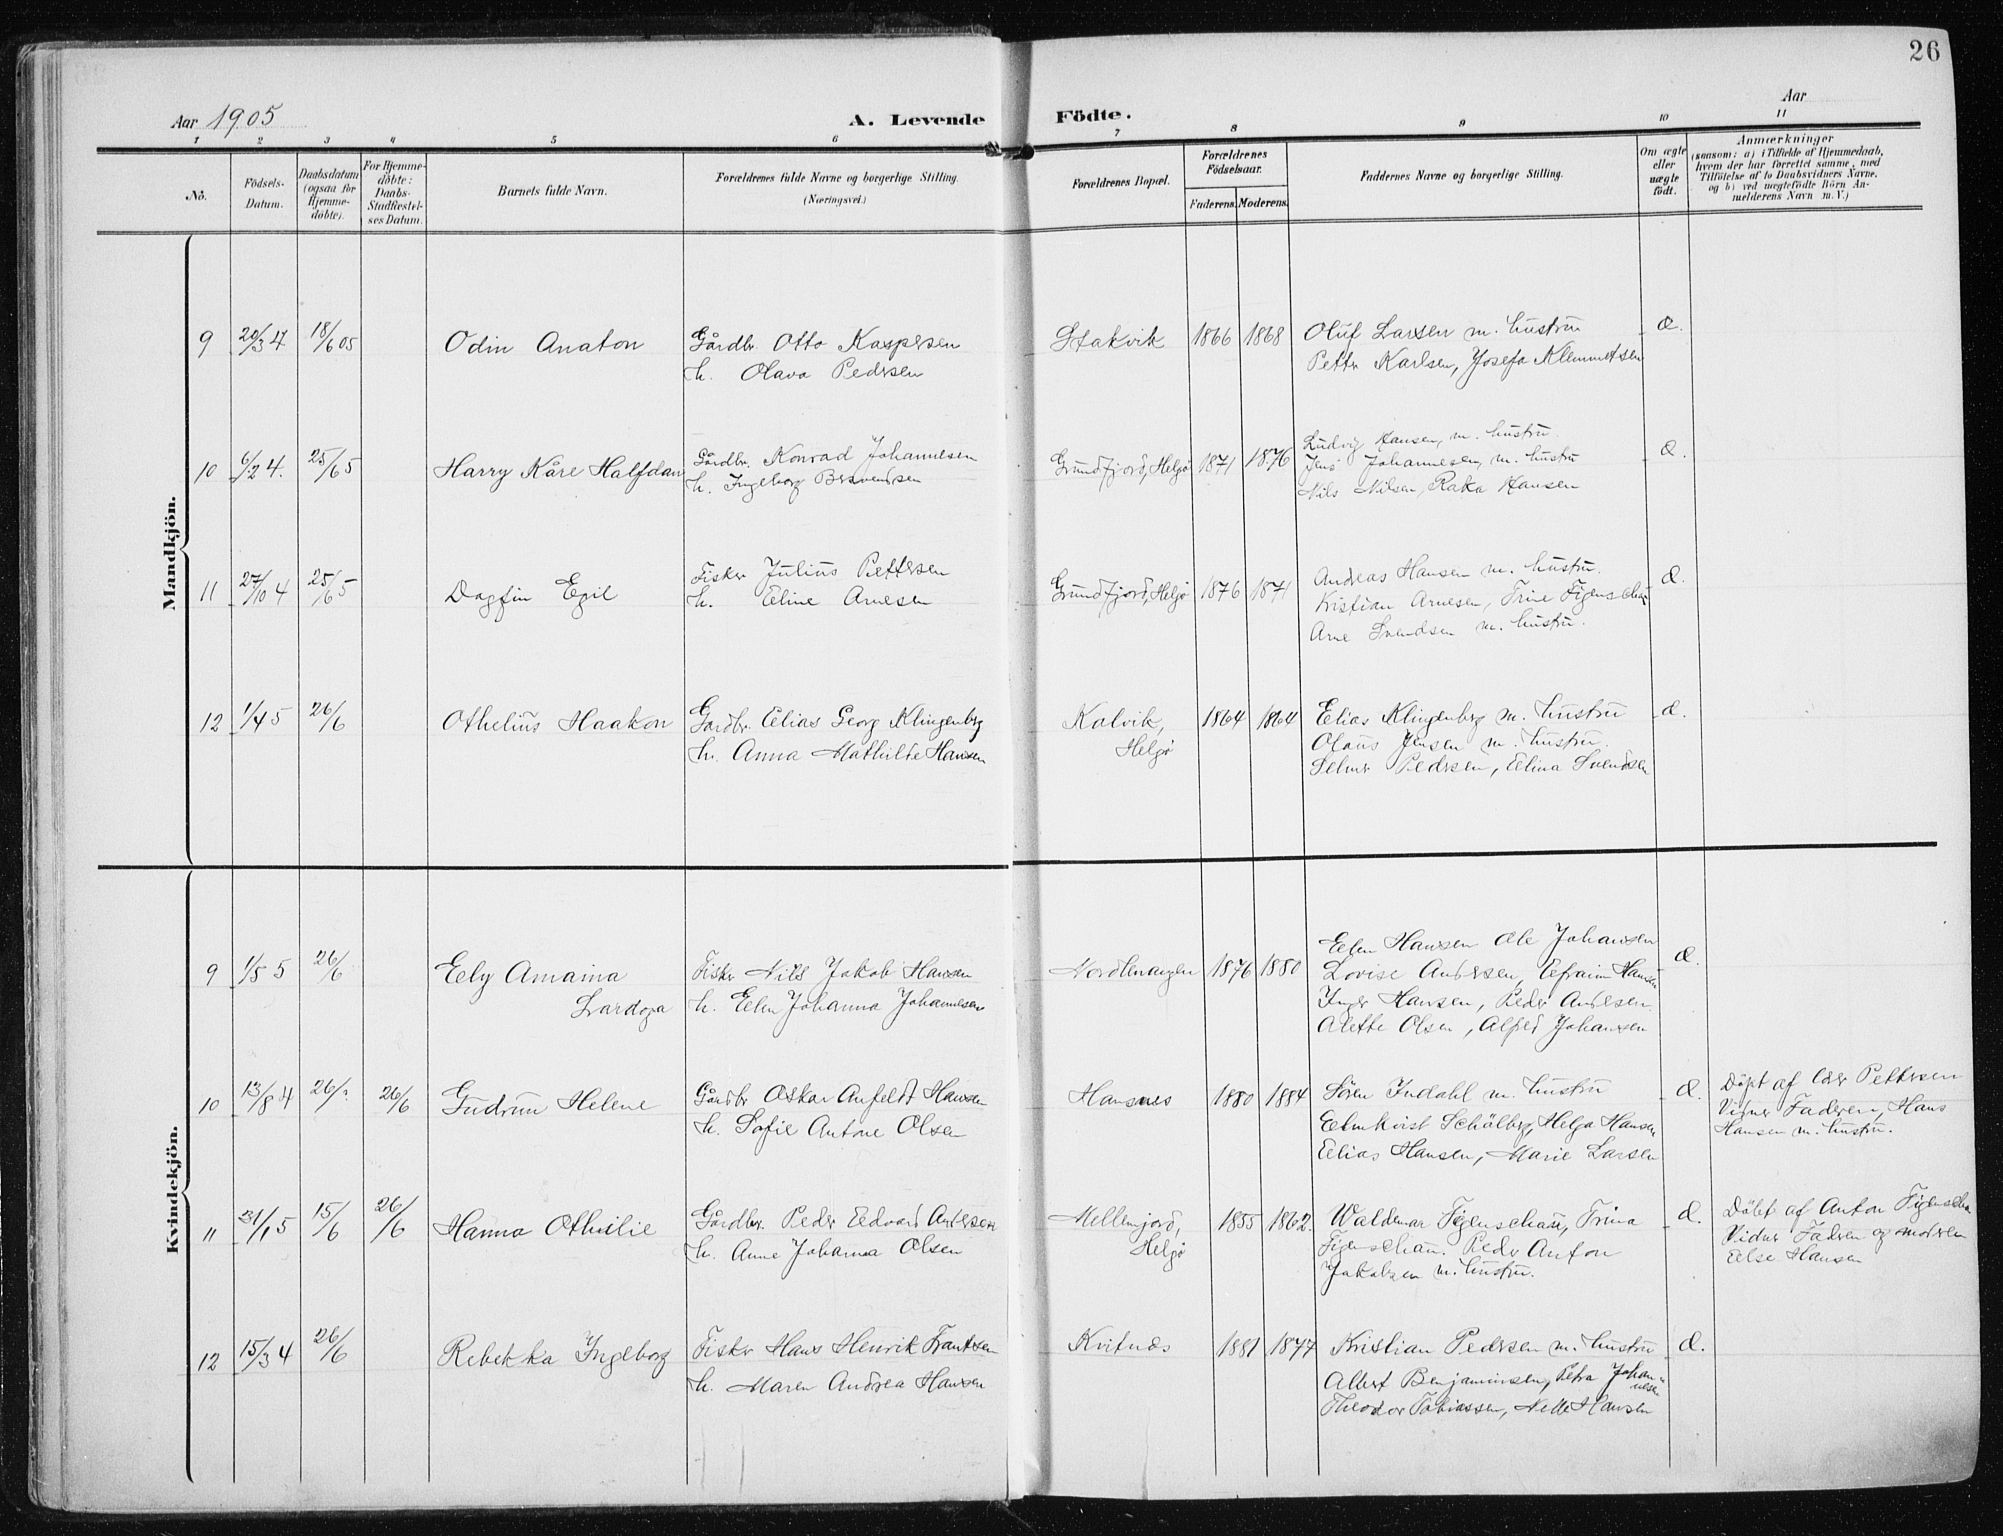 26
Aar 1905
A. Levende Födte.
Aar
1 2 3 4 5 6 7 8 9 10 11
No.
Födsels-Datum.
Daabsdatum (ogsaa for Hjemmedöbte).
For Hjemmedöbte: Daabs-Stadfæstelses Datum.
Barnets fulde Navn.
Forældrenes fulde Navne og borgerlige Stilling. (Næringsvei.)
Forældrenes Bopæl.
Forældrenes Födselsaar.
Faderens. Moderens.
Faddernes Navne og borgerlige Stilling.
Om ægte eller uægte födt.
Anmærkninger
(saasom: a) i Tilfælde af Hjemmedaab, hvem der har forrettet samme, med Tilföielse af to Daabsvidners Navne, og b) ved uægtefödte Börn Anmelderens Navn m. V.)
Mandkjön.
9 20/3 4 18/6 05 Odin Anaton
Gårdbr. Otto Kaspersen
h. Olava Pedersen
Stakvik 1866 1868
Oluf Larsen m. hustru
Petter Karlsen, Josefa Klemmetsen
æ.
10 6/12 4. 25/6 5 Harry Kåre Halfdan
Gårdbr. Konrad Johannesen
h. Ingeborg Berendsen
Grundfjord, Helgø 1871 1876
Ludvig Hansen, m. hustru.
Jens Johannesen, m. hustru
Nils Nilsen, Raka Hansen
æ.
11 27/10 4 25/6 5 Dagfin Egil
Fisker Julius Pettersen
h. Eline Arnesen
Grundfjord, Helgø 1876 1871
Andreas Hansen m. hustru.
Kristian Arnesen, Trine Figenschau
Arne Svendsen m. hustru.
æ.
12 1/4 5 26/6 Othelius Haakon
Gardbr. Elias Georg Klingenberg
h. Anna Mathilde Hansen
Kalvik, Helgø 1864 1864
Elias Klingenberg m. hustru
Olaus Jensen m. hustru.
Selmer Pedersen, Elina Svendsen
æ.
Kvindekjön.
9 1/5 5 26/6 Ely Amaina
Lardoga
Fisker Nils Jakob Hansen
h. Elen Johanna Johannesen
Nordlenangen 1876 1880
Elen Hansen Ole Johansen
Lovise Andersen, Efraim Hansen
Inger Hansen, Peder Andersen
Alette Olsen, Alfred Johansen
æ.
10 13/8 4 26/? 26/6 Gudrun Helene
Gårdbr Oskar Anfeldt Hansen
h. Sofie Antone Olsen
Hansnes 1880 1884
Sören Indahl m. hustru
Elmkvist Schölberg, Helga Hansen
Elias Hansen, Marie Larsen
æ.
Döpt af Eder Pettersen
Vidner Faderen, Hans
Hansen m. hustru.
11 31/1 5 15/6 26/6 Hanna Othilie
Gårdbr. Peder Edvard Andersen
h. Anne Johanna Olsen
Mellemjord, Helgø 1855 1862.
Waldemar Figenschau, Trina
Figenschau. Peder Anton
Jakobsen m. hustru.
æ.
Döbt af Anton Figenschau
Vidner Faderen og moderen
Else Hansen
12 15/3 4 26/6 Rebekka Ingeborg
Fisker Hans Henrik Frantsen
h. Maren Andrea Hansen
Kvitnæs 1881 1877
Kristian Pedersen m. hustru
Albert Benjaminsen, Petra Johannesen
Theodor Tobiassen, Nelle Hansen
æ.